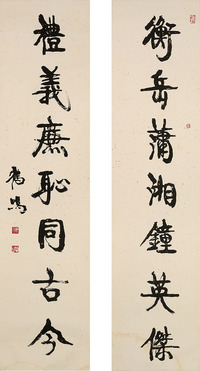 衡岳蕭湘鐘英傑
禮義廉恥同古今